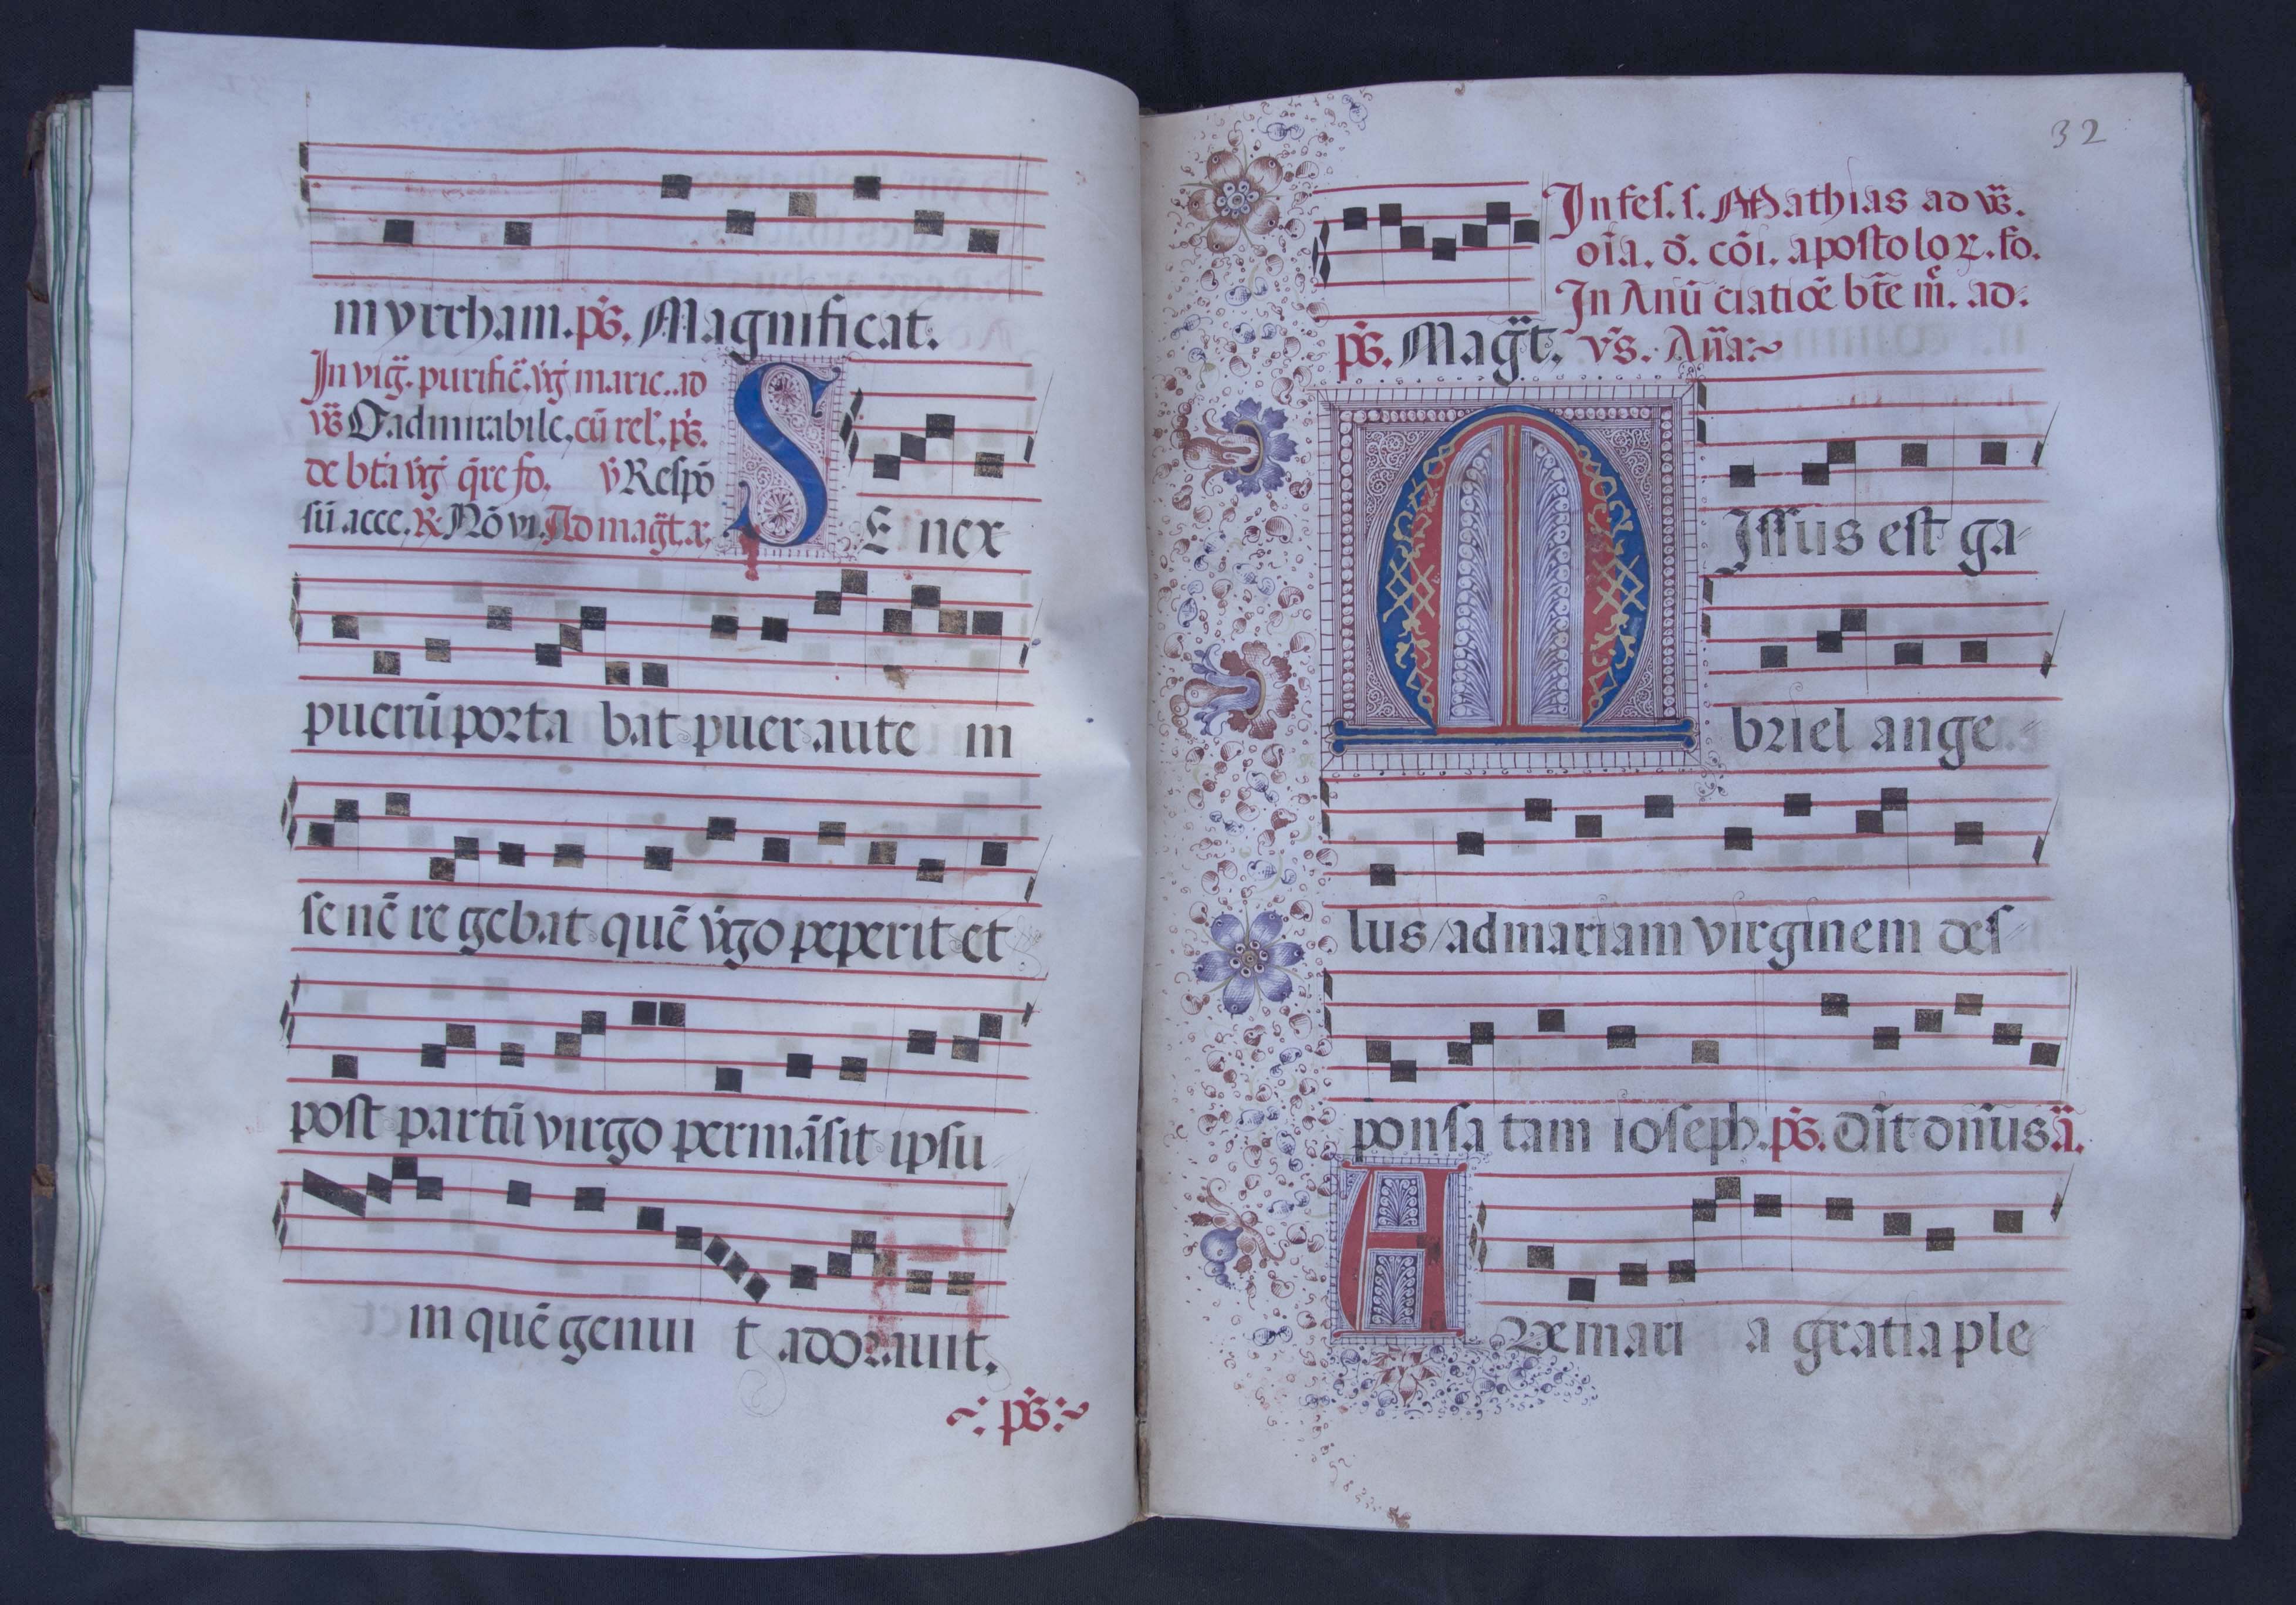 myrrham. ps̄. Magnificat.
In vig̃. purific̃. v̇ġ marie. ad
vs̄ O admirabile, cū rel'. ps̄.
de bt̄i v̇ġ q̄re fo. v̇ Respō
sū acce. R. Nō vi. Ad mag̃t. a.
S E nex
puerū porta bat puer aute m
se nē re gebat quē v̇go peperit et
post partū virgo permāsit ipsu
m quē genui t adoravit.
ps̄:~
32
In fes. s. Mathias ad vs̄.
oīa. d̄. cōi. apostoloꝝ. fo.
In Anū ciatiōe bt̄e m̄. ad.
ps̄. Mag̃t. vs̄. Añā:~
M Issus est ga-
briel ange-
lus / ad mariam virginem des-
ponsa tam ioseph. ps̄. Dit̄ dn̄us ā.
A Ve mari a gratia ple